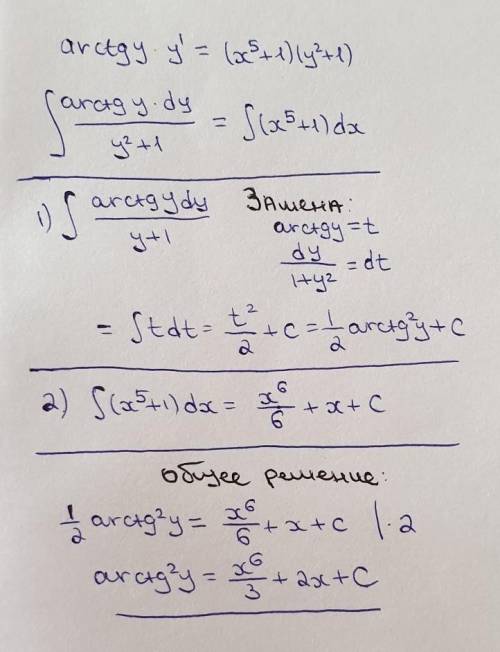 arctg y · y' = (x⁵+1)(y²+1)
∫ arctg y · dy / y²+1 = ∫(x⁵+1)dx
1) ∫ arctg y dy / y+1 Замена:
arctg y = t
dy / 1+y² = dt
= ∫ t dt = t²/2 + C = 1/2 arctg²y + C
2) ∫(x⁵+1)dx = x⁶/6 + x + C
общее решение:
1/2 arctg²y = x⁶/6 + x + C |·2
arctg²y = x⁶/3 + 2x + C